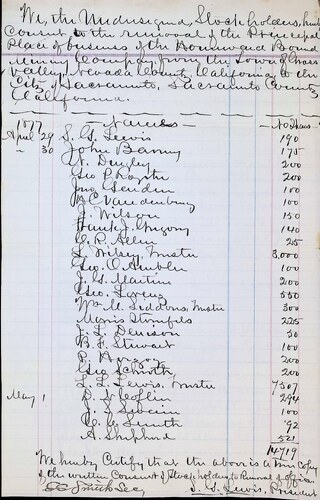 We, the Undersigned, Stock holders, hereby
Consent to the removal of the Principal
Place of business of the Homeward Bound
Mining Company, from the town of Grass
Valley, Nevada County, California, to the
City of Sacramento, Sacramento County
California.
1877 Names No Shares
April 29 S. L. Lewis 190
" 30 John Barny 175
N. Dingley 200
Geo P. 200
Jno 100
100
J. Wilson 150
Frank J. Gregory 140
C. P. Allen 25
L. Wilsey, Trustee 3,000
Geo. O. Ambler 100
J. G. Martin 200
Geo. 550
Wm M. Siddons, Trustee 300
Morris 225
J. L. Denison 50
B. F. Stewart 100
P. 200
Geo Schroth 200
L. L. Lewis, Trustee 7507
May 1 D. W. Coffin 294
J. F. 100
C. C. Smith 92
A. Shepherd 521
14719
We hereby Certify that the above is a True Copy
of the written Consent of Stockholders to Removal of Office
Secy L. L. Lewis, President